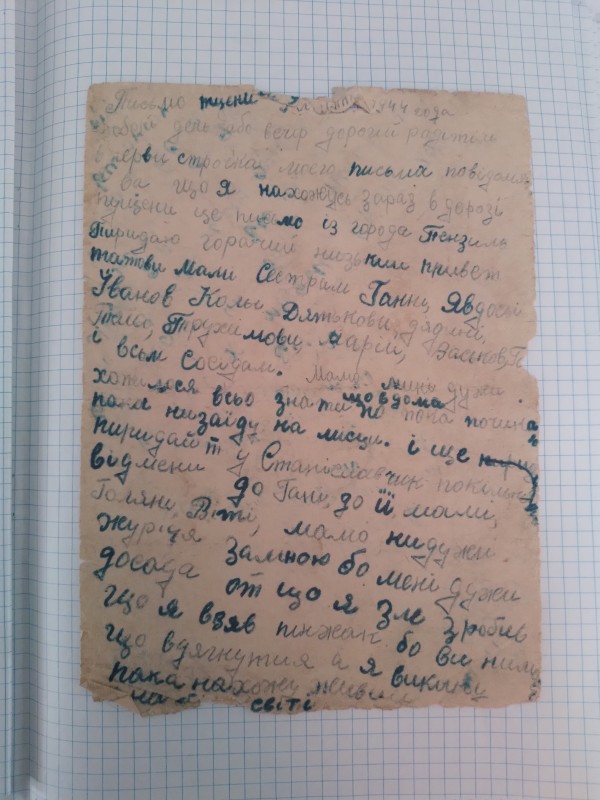 Письмо пщени 1944 года
добрий день або вечір дорогий родители
в перви строчка мого письма повидомля
ва що я нахожусь зараз в дорозі
пущени це письмо із города Пензиль
Пиридаю горачий низький привет
татови Мами Сестрам Ганни, Явдосі
Іванов Кольи Дятькови, дядині,
Трухимовц. Марій,
і всьм сосідам. Мамо мини дужи
хотилося всьо знати що вдома но пока почина
пока низайду на мисци. і ще
пиридайт
відмени у Станіславчик поклин
до Гані, до її мами,
Голяни, Віті, мамо нидужи
журіця заміною бо мені дужи
досада от що я зле зробив
що я взяв пінжак бо ви нима
що вдягнутия а я викину
пока нахожу живи
на світі